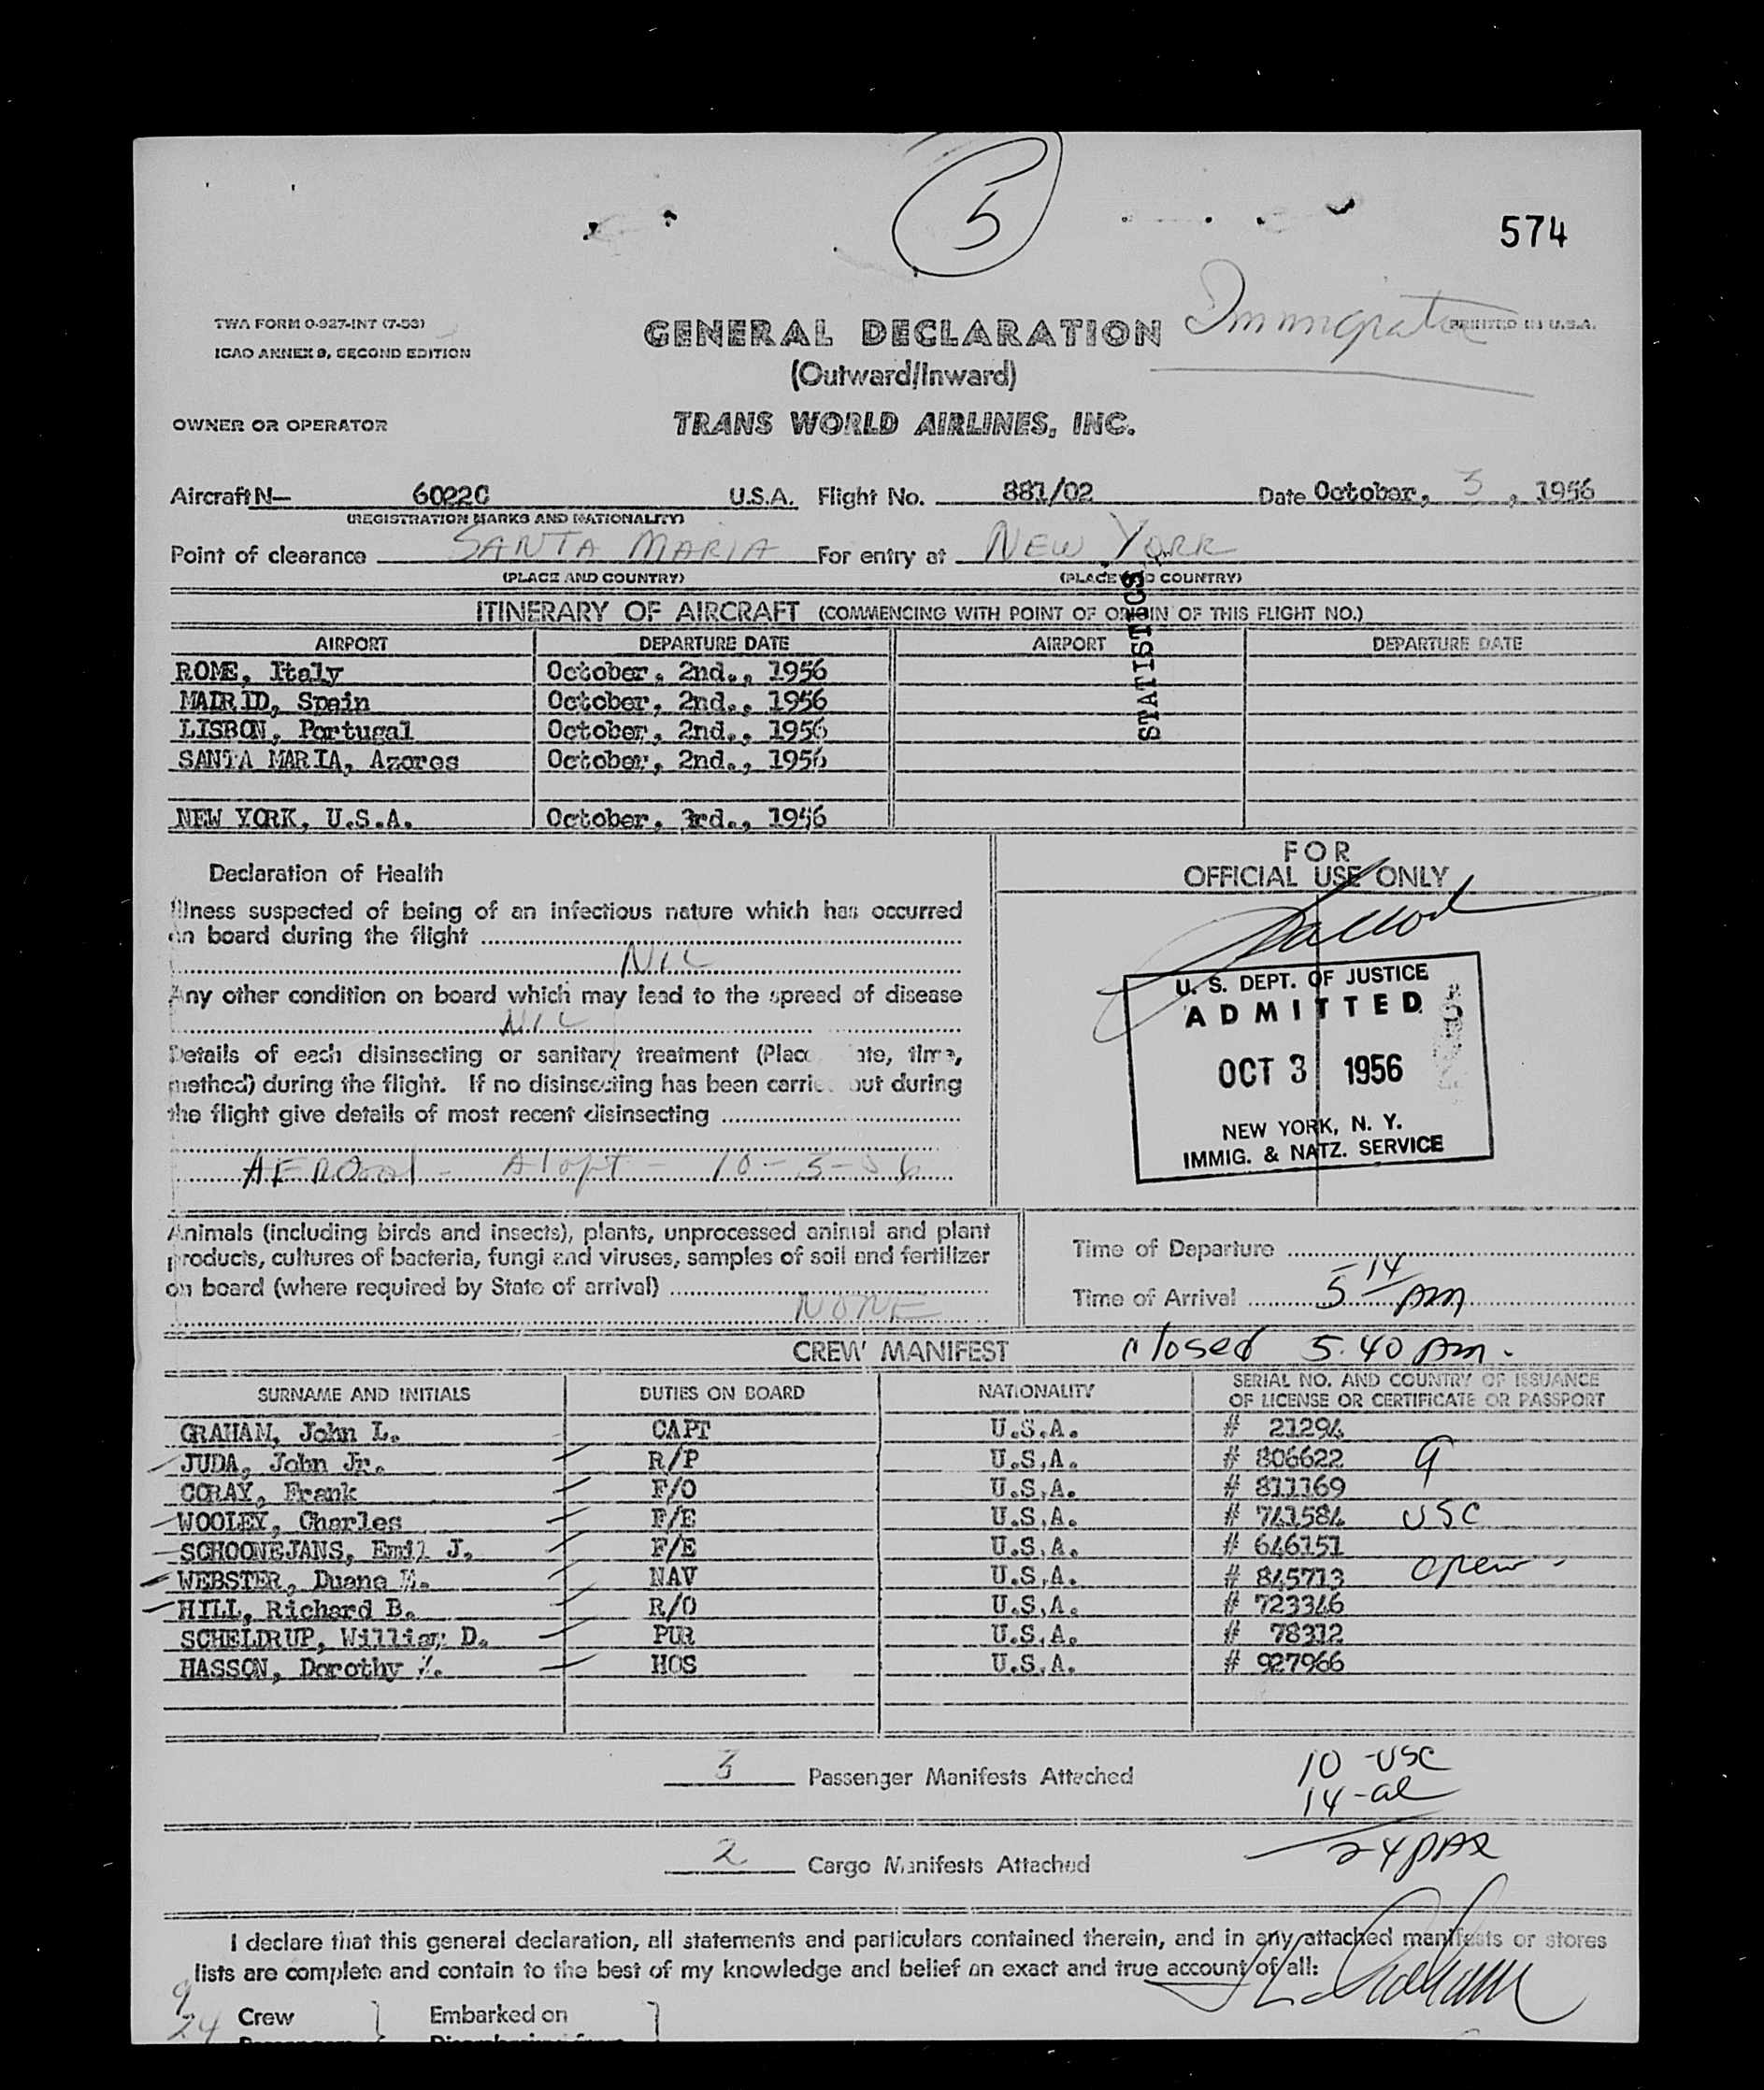 5
574
TWA FORM 0-927-INT (7-53)
ICAO ANNEX 9, SECOND EDITION
GENERAL DECLARATION
Immigration
PRINTED IN U.S.A.
(Outward/Inward)
OWNER OR OPERATOR
TRANS WORLD AIRLINES, INC.
Aircraft N— 6022C U.S.A. Flight No. 881/02 Date October, 3, 1956
(REGISTRATION MARKS AND NATIONALITY)
Point of clearance SANTA MARIA For entry at NEW YORK
(PLACE AND COUNTRY) (PLACE AND COUNTRY)
STATISTICS
ITINERARY OF AIRCRAFT (COMMENCING WITH POINT OF ORIGIN OF THIS FLIGHT NO.)
AIRPORT DEPARTURE DATE AIRPORT DEPARTURE DATE
ROME, Italy October, 2nd., 1956
MADRID, Spain October, 2nd., 1956
LISBON, Portugal October, 2nd., 1956
SANTA MARIA, Azores October, 2nd., 1956
NEW YORK, U.S.A. October, 3rd., 1956
Declaration of Health
Illness suspected of being of an infectious nature which has occurred
on board during the flight
NIL
Any other condition on board which may lead to the spread of disease
NIL
Details of each disinsecting or sanitary treatment (Place, date, time,
method) during the flight. If no disinsecting has been carried out during
the flight give details of most recent disinsecting
AEROSOL -
FOR
OFFICIAL USE ONLY
U. S. DEPT. OF JUSTICE
ADMITTED
OCT 3 1956
NEW YORK, N. Y.
IMMIG. & NATZ. SERVICE
Animals (including birds and insects), plants, unprocessed animal and plant
products, cultures of bacteria, fungi and viruses, samples of soil and fertilizer
on board (where required by State of arrival)
NONE
Time of Departure
Time of Arrival 5 14 AM
CREW MANIFEST closed 5.40 AM.
SURNAME AND INITIALS DUTIES ON BOARD NATIONALITY SERIAL NO. AND COUNTRY OF ISSUANCE
OF LICENSE OR CERTIFICATE OR PASSPORT
GRAHAM, John L. CAPT U.S.A. # 21294
JUDA, John Jr. R/P U.S.A. # 806622 9
CORAY, Frank F/O U.S.A. # 811169
WOOLEY, Charles F/E U.S.A. # 741584 USC
SCHOONEJANS, Emil J. F/E U.S.A. # 646151
WEBSTER, Duane E. NAV U.S.A. # 845713 crew
HILL, Richard B. R/O U.S.A. # 723346
SCHELDRUP, William D. PUR U.S.A. # 78312
HASSON, Dorothy HOS U.S.A. # 927966
3 Passenger Manifests Attached
10 -USC
14 -al
24 PAX
2 Cargo Manifests Attached
I declare that this general declaration, all statements and particulars contained therein, and in any attached manifests or stores
lists are complete and contain to the best of my knowledge and belief an exact and true account of all:
J L Graham
9 Crew } Embarked on }
24